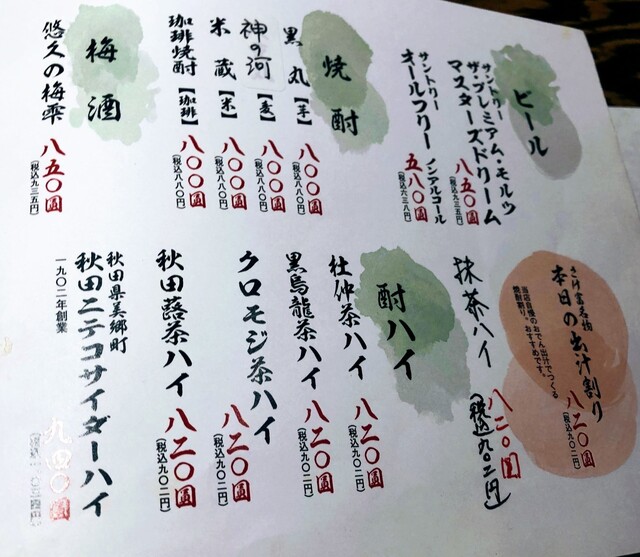 ビール
サントリー
ザ・プレミアム・モルツ
マスターズドリーム
八五〇圓
(税込九三五円)
サントリー
オールフリー ノンアルコール
五八〇圓
(税込六三八円)
焼酎
黒丸【芋】
八〇〇圓
(税込八八〇円)
神の河【麦】
八〇〇圓
(税込八八〇円)
米蔵【米】
八〇〇圓
(税込八八〇円)
珈琲焼酎【珈琲】
八〇〇圓
(税込八八〇円)
梅酒
悠久の梅雫
八五〇圓
(税込九三五円)
本日の出汁割り
当店自慢のおでん出汁でつくる
焼酎割り。おすすめです。
八二〇圓
(税込九〇二円)
抹茶ハイ
八二〇圓
(税込九〇二円)
酎ハイ
杜仲茶ハイ
八二〇圓
(税込九〇二円)
黒烏龍茶ハイ
八二〇圓
(税込九〇二円)
クロモジ茶ハイ
八二〇圓
(税込九〇二円)
秋田蕗茶ハイ
八二〇圓
(税込九〇二円)
秋田県美郷町
秋田ニテコサイダーハイ
一九〇二年創業
九四〇圓